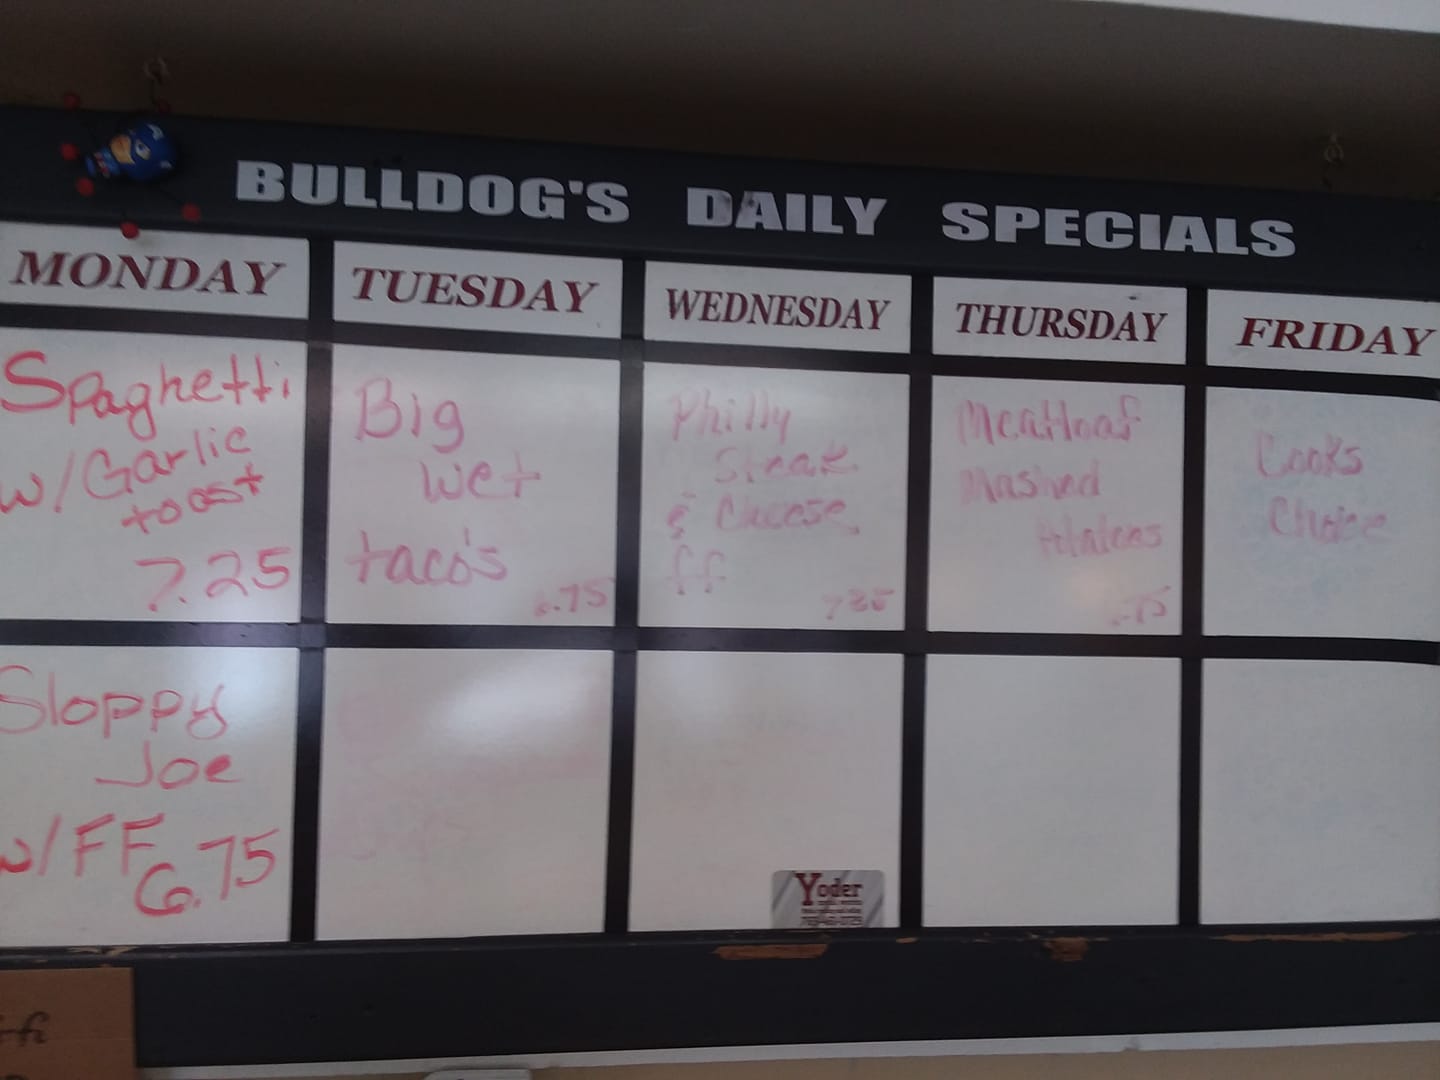 BULLDOG'S DAILY SPECIALS
MONDAY
Spaghetti
w/Garlic
toast
7.25
Sloppy
Joe
w/FF
6.75
TUESDAY
Big
Wet
taco's
6.75
WEDNESDAY
Philly
Steak
& Cheese
ff
Yoder
THURSDAY
Meatloaf
Mashed
Potatoes
.75
FRIDAY
Cooks
Choice